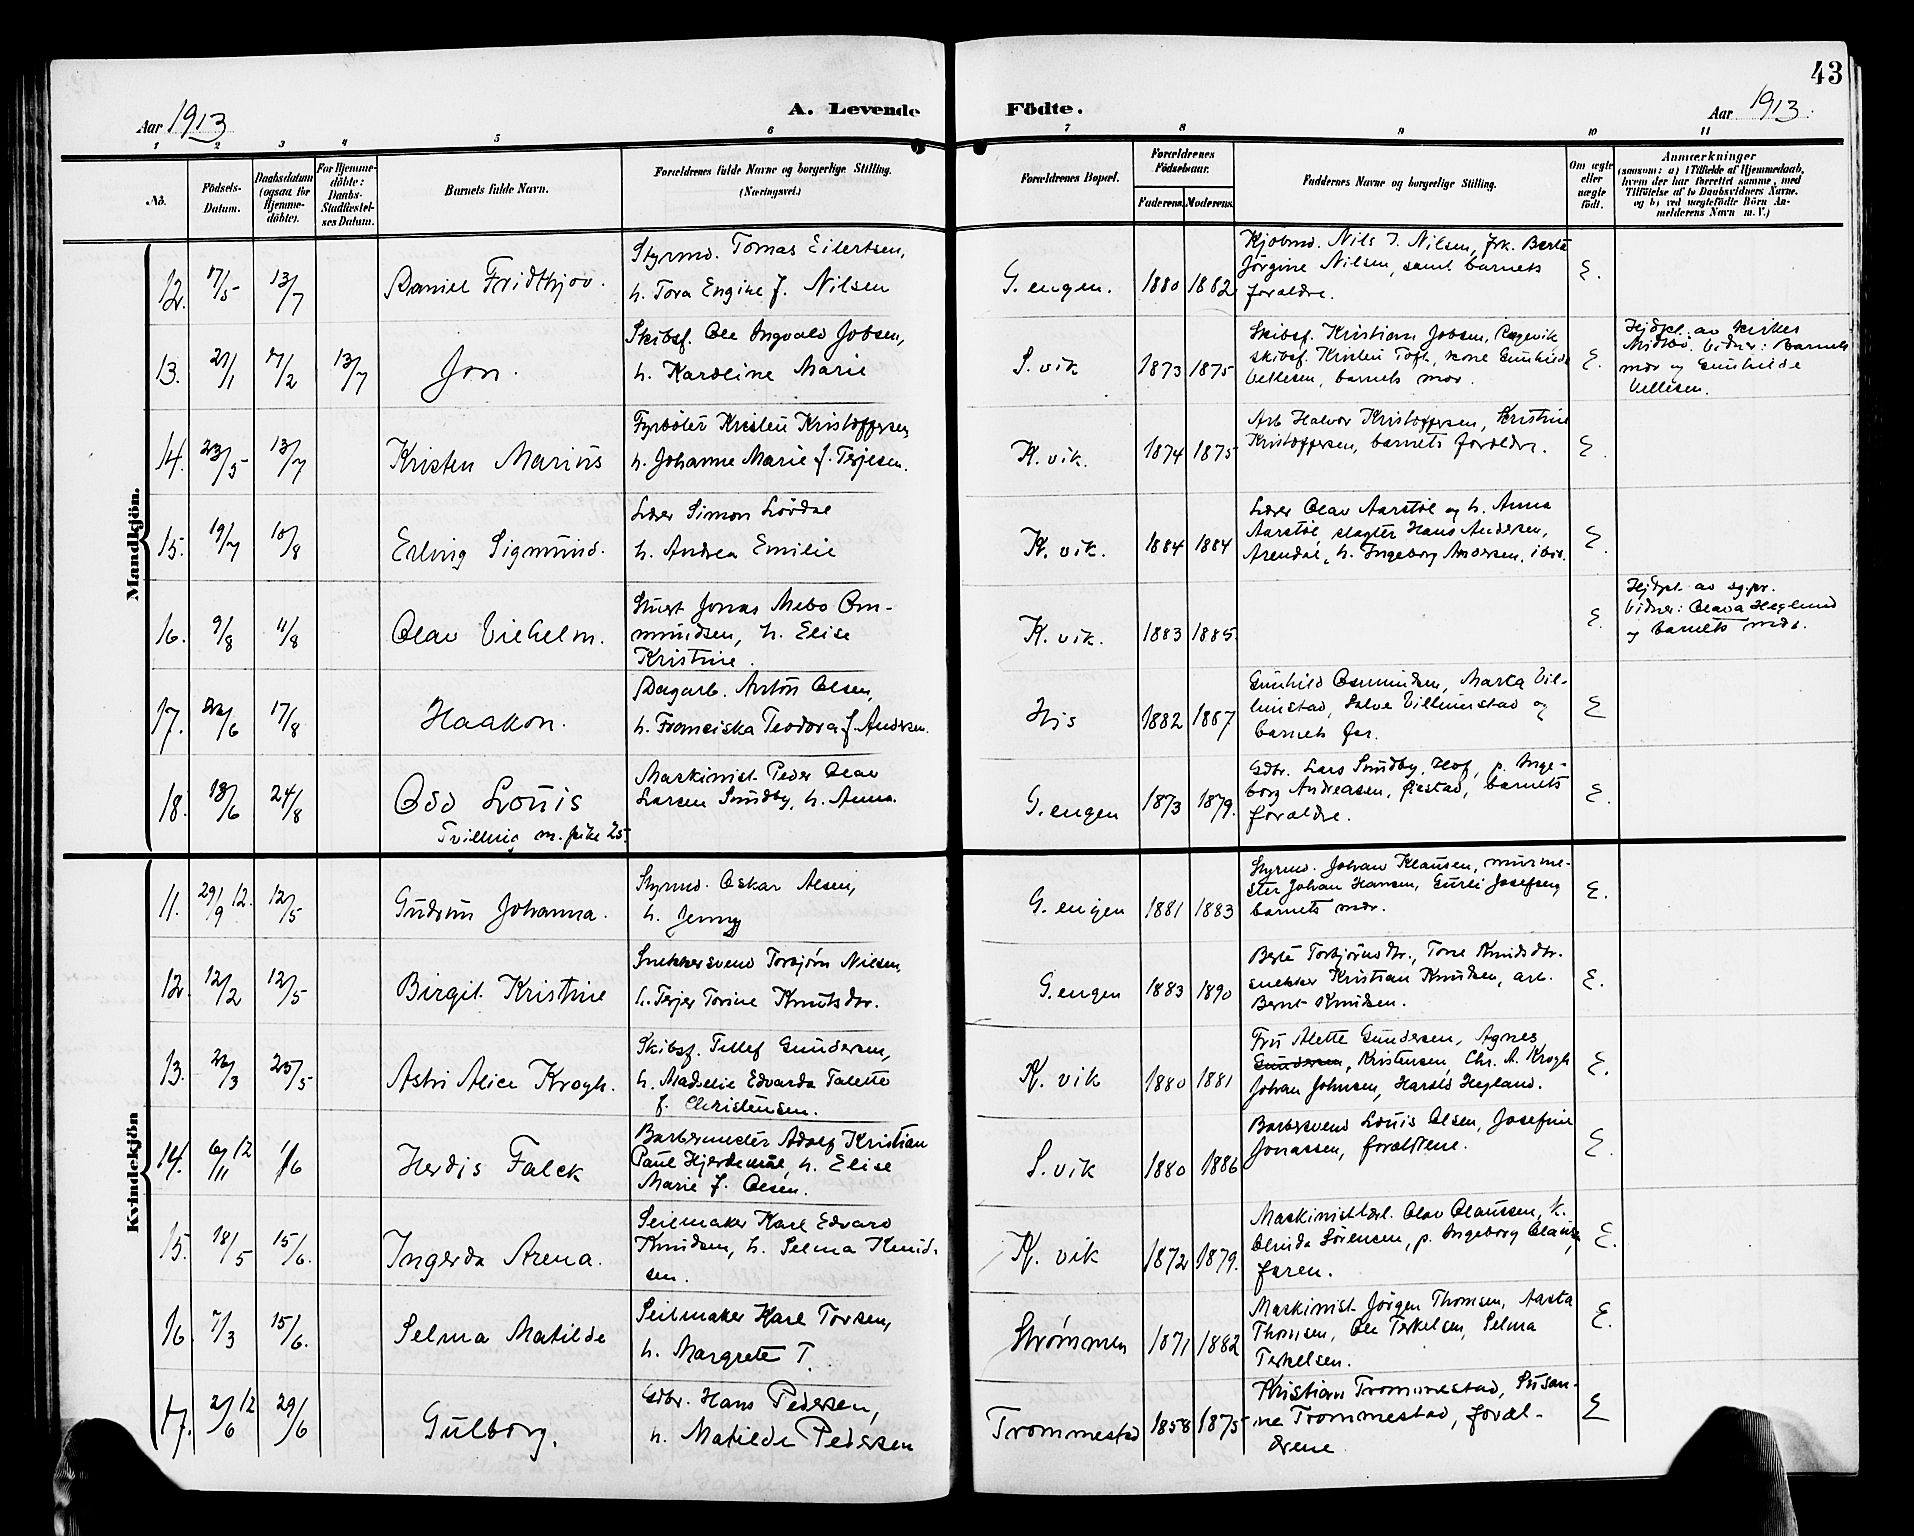 43
Aar 1913
A. Levende
Födte.
Aar 1913.
1 2 3 4 5 6 7 8 9 10 11
No.
Födsels-
Datum.
Daabsdatum
(ogsaa for
Hjemme-
döbte).
For Hjemme-
döbte:
Daabs-
Stadfæstel-
ses Datum.
Barnets fulde Navn.
Forældrenes fulde Navne og borgerlige Stilling.
(Næringsvei.)
Forældrenes Bopæl.
Forældrenes
Födselsaar.
Faderens. Moderens.
Faddernes Navne og borgerlige Stilling.
Om ægte
eller
uægte
födt.
Anmærkninger
(saasom: a) i Tilfælde af Hjemmedaab,
hvem der har forrettet samme, med
Tilföielse af to Daabsvidners Navne.
og b) ved uægtefödte Börn An-
melderens Navn m. V.)
Mandkjön.
12. 17/5 13/7
Daniel Fridthjov.
Styrmd. Tomas Eilertsen,
h. Tora Engine f. Nilsen
G. engen. 1880 1882
Kjøbmd. Nils J. Nilsen, frk. Berta
Jörgine Nilsen, samt barnets
forældre.
E.
13. 21/1 17/2 13/7
Jon.
Skibsf. Ole Ingvald Jobsen,
h. Karoline Marie
S. vik 1873 1875
Skibsf. Kristian Jobsen,
skibsf. Kristen Toft, kone Gunhilde
Vellesen, barnets mor.
E.
Hjdpt. av kirkes.
Vidner: barnets
mor og Gunhilde
Vellesen.
14. 23/5 13/7
Kristen Marius
Fyrbøter Kristen Kristoffersen,
h. Johanne Marie f. Terjesen.
K. vik. 1874 1875
Arb. Halvor Kristoffersen, Kristine
Kristoffersen, barnets forældre.
E.
15. 19/7 10/8
Erling Sigmund.
Lærer Simon Lövdal
h. Andrea Emilie
K. vik. 1884 1884
Lærer Olav Aarstöl og h. Anna
Aarstöl, slagter Hans Andersen,
Arendal, h. Ingeborg Andersen, ibid.
E.
16. 9/8 11/8
Olav Vilhelm.
Stuert Jonas Mebo Om-
mundsen, h. Elise
Kristine.
K. vik. 1883 1885.
E.
Hjdpt. av sg.pr.
Vidner: Olava Heglund
og barnets mor.
17. 22/6 17/8
Haakon.
Dagarb. Anton Olsen,
h. Franciska Teodora f. Andersen.
His 1882 1887
Gunhild Osmundsen, Marta Vil-
lumstad, Salve Villumstad og
barnets far.
E
18. 18/6 24/8
Odd Louis
Tvilling m. pike 25.
Maskinist Peder Olav
Larsen Sundby, h. Anna.
G. engen 1873 1879.
Gdbr. Lars Sundby, Hof, p. Inge-
borg Andreasen, Øiestad, barnets
forældre.
E.
Kvindekjön
11. 29/9 12. 12/5
Gudrun Johanna.
Styrmd. Oskar Olsen,
h. Jenny
G. engen 1881 1883
Styrmd. Johan Klausen, murme-
ster Johan Hansen, Gurli Josefsen,
barnets mor.
E.
12. 12/2 12/5
Birgit Kristine
Snekkersvend Torbjørn Nilsen,
h. Terjer Torine Knutsdtr.
G. engen 1883 1890
Berte Torbjörnsdtr., Tone Knudsdtr.
snekker Kristian Knudsen, arb.
Bernt Knudsen.
E.
13. 22/3 25/5
Astri Alice Krogh.
Skibsf. Tellef Gundersen,
h. Edvarda Talette
f. Christensen.
K. vik 1880 1881
Fru Alette Gundersen, Agnes
Gundersen, Kristensen, Chr. A. Krogh
Johan Johnsen, Harald Hegland.
E.
14. 6/11 12 1/6
Herdis Falck
Barbermester Adolf Kristian
Paul Hjerdemål, h. Elise
Marie f. Olsen.
S. vik 1880 1886
Barbersvend Louis Olsen, Josefine
Jonassen, forældrene.
E.
15. 18/5 15/6.
Ingerda Arena.
Seilmaker Karl Edvard
Knudsen, h. Selma Knud-
sen.
K. vik 1872 1879.
Maskinistlærl. Olav Olaussen, k.
Olinda Sörensen, p. Ingeborg Olaus.,
faren.
E.
16. 7/3 15/6.
Selma Matilde
Seilmaker Karl Torsen,
h. Margrete T.
Strømmen 1871 1882
Maskinist Jörgen Thomsen, Aasta
Thomsen, Ole Terkelsen, Selma
Terkelsen.
E.
17. 2/6 12 29/6
Gulborg.
Gdbr. Hans Pedersen,
h. Matilde Pedersen
Trommestad 1858 1875
Kristian Trommestad, Susan-
ne Trommestad, foræl-
drene.
E